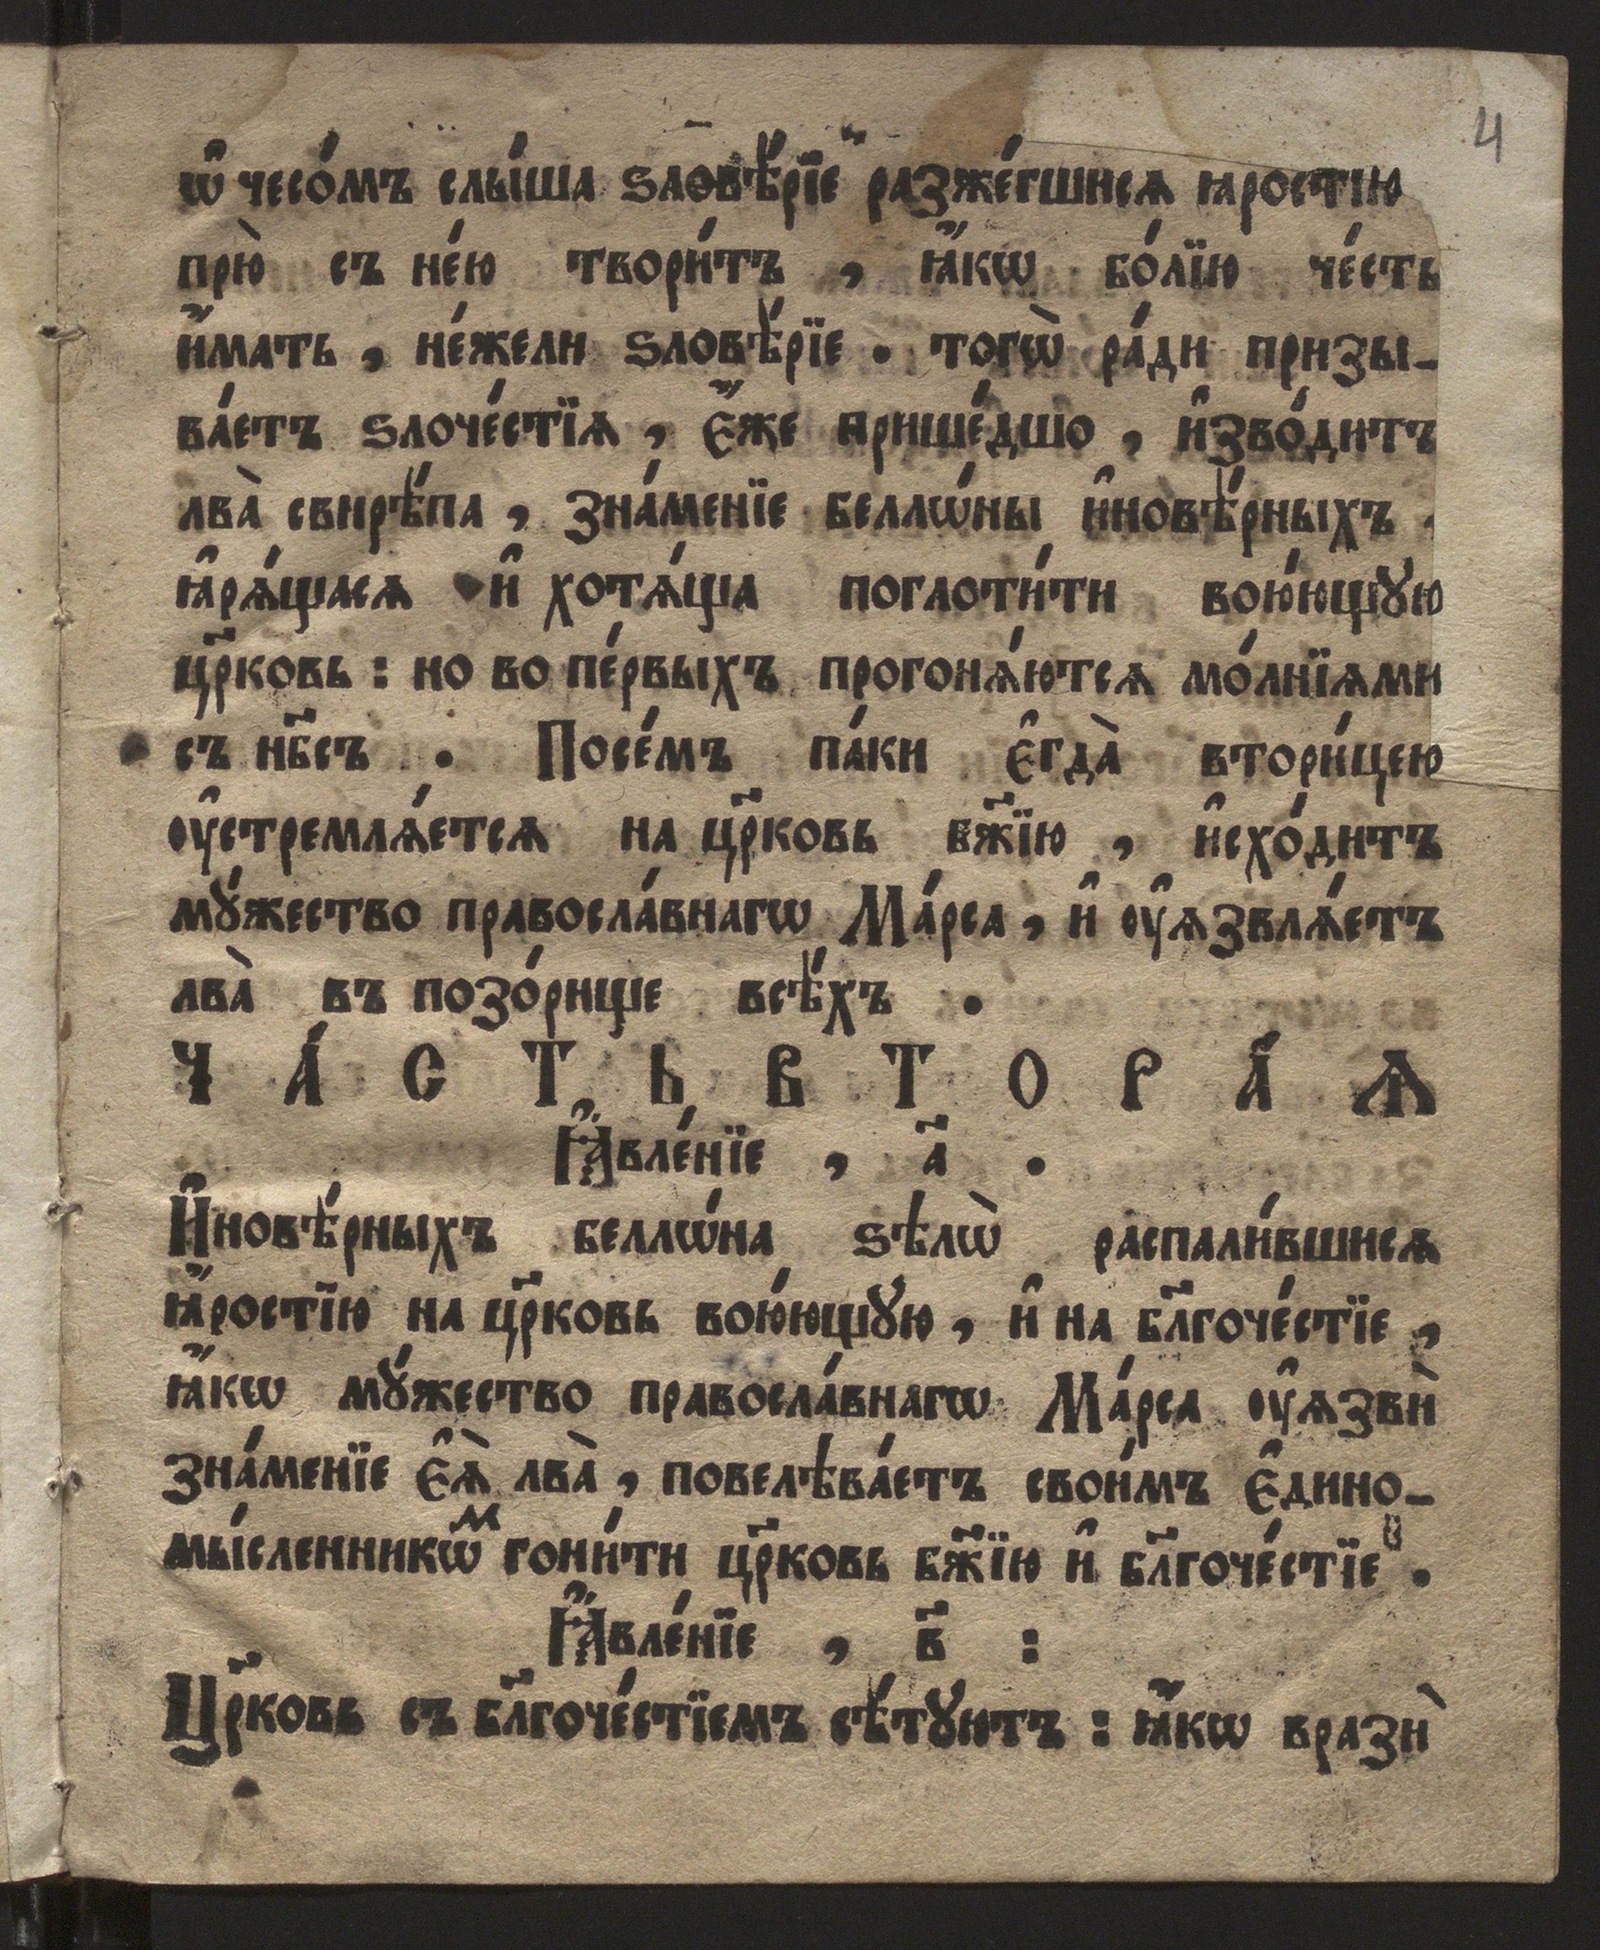 4
ѡ҆ чесо́мъ слы́ша ѕловѣ́рїе разже́гшисѧ ꙗростїю
прю̀ съ не́ю твори́тъ , ꙗ҆́кѡ бо́лїю че́сть
и҆́мать , не́жели ѕловѣ́рїе . тогѡ̀ ра́ди призы-
ва́етъ ѕлоче́стїѧ , є҆́же прише́дшо , и҆зво́дитъ
лва̀ свирѣ́па , зна́менїе беллѡ́ны и҆новѣ́рныхъ .
ꙗ҆рѧ́щасѧ и҆ хотѧ́ща поглоти́ти вою́ющꙋю
цр҃ковь : но во пе́рвыхъ прогонѧ́ютсѧ мо́лнїѧми
съ нб҃съ . Посе́мъ па́ки є҆гда̀ втори́цею
оу҆стремлѧ́етсѧ на цр҃ковь бж҃їю , и҆схо́дитъ
мꙋ́жество правосла́внагѡ Ма́рса , и҆ оу҆ѧзвлѧ́етъ
лва̀ въ позо́рище всѣ́хъ .
ЧА́СТЬ ВТОРА́Ѧ
Ꙗ҆вле́нїе , а҃ .
И҆новѣ́рныхъ беллѡ́на ѕѣлѡ̀ распали́вшисѧ
ꙗ҆́ростїю на цр҃ковь вою́ющꙋю , и҆ на бл҃гоче́стїе ,
ꙗ҆́кѡ мꙋ́жество правосла́внагѡ Ма́рса оу҆ѧзвѝ
зна́менїе є҆ѧ̀ лва̀ , повелѣва́етъ свои́мъ є҆дино-
мы́сленникѡⷨ гони́ти цр҃ковь бж҃їю и҆ бл҃гоче́стїе .
Ꙗ҆вле́нїе , в҃ :
Цр҃ковь съ бл҃гоче́стїемъ сѣ́тꙋютъ : ꙗ҆́кѡ вразѝ